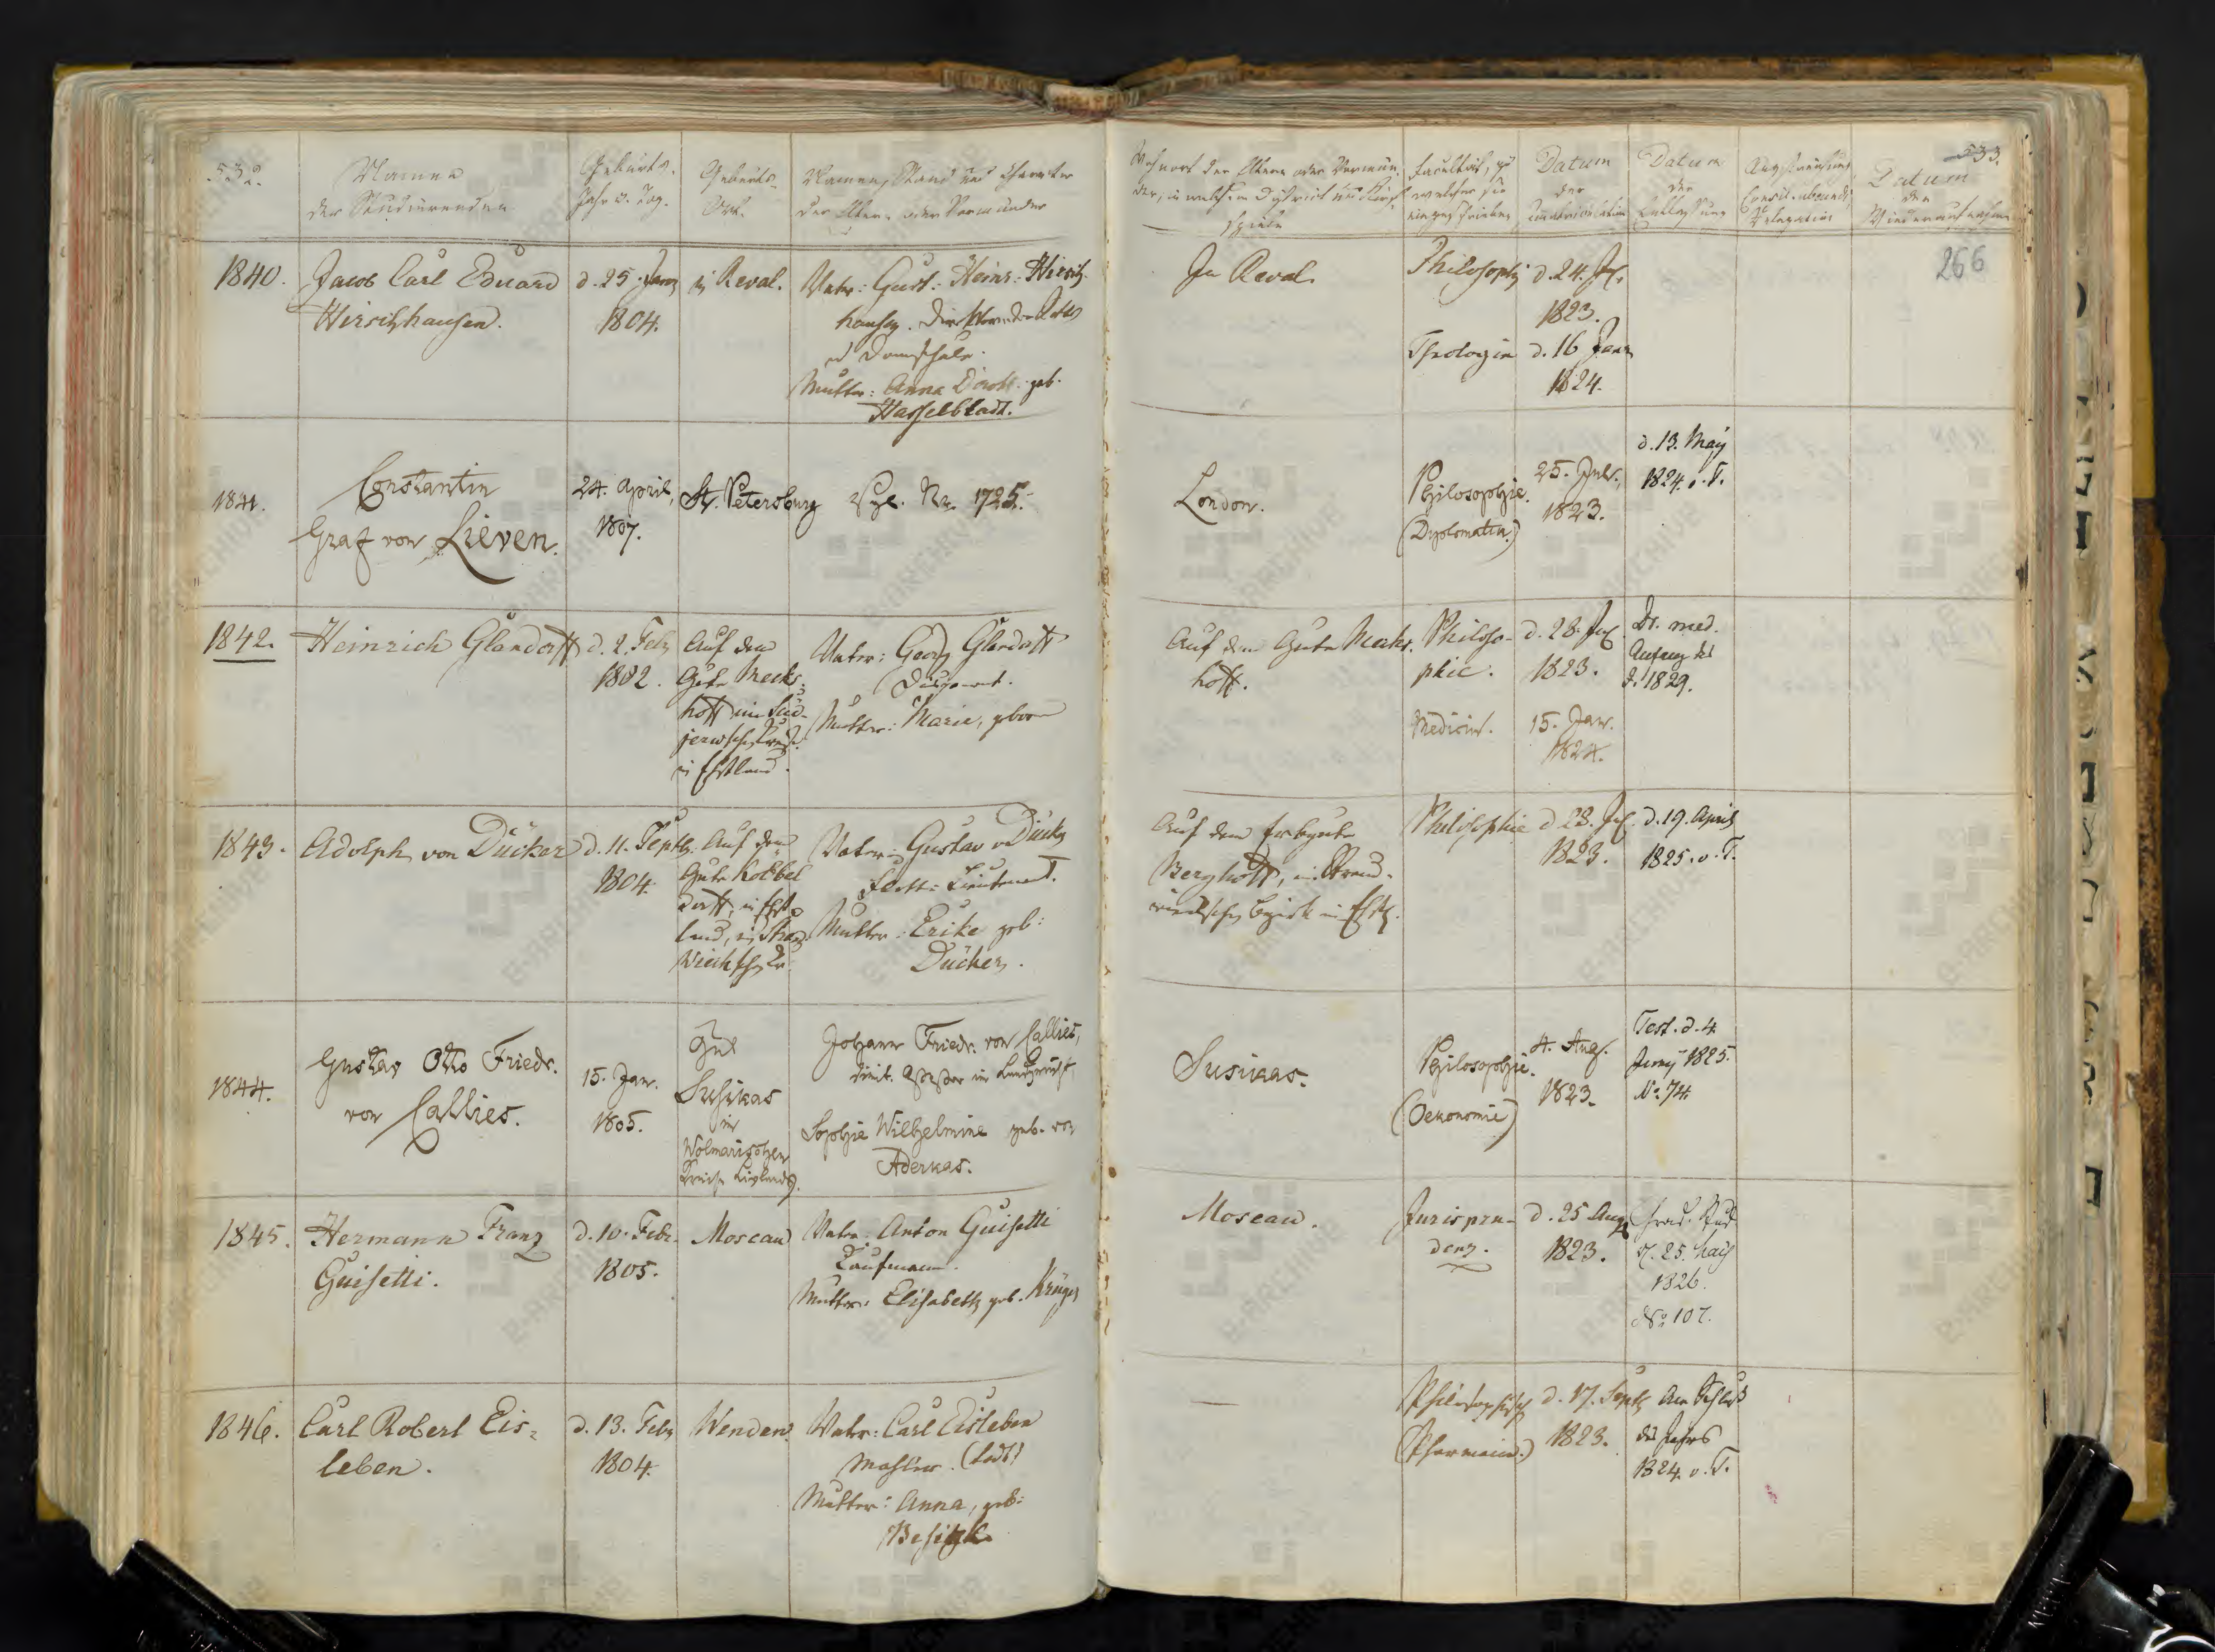 532.
Namen
der Studierenden
Geburts-
Jahr u. Tag.
Geburts-
Ort.
Namen, Stand und Charakter
der Eltern oder Vormünder
Wohnort der Eltern oder Vormün-
der, in welchem District und Kirch-
spiele
Facultät, zu
welcher sie
eingeschrieben
Datum
der
Immatriculation
Datum
der
Entlassung
Consil. abeundi,
Relegation
Datum
der
Wiederaufnahme
533.
266
1840.
Jacob Carl Eduard
Hirschhausen.
d. 25. Janr
1804.
in Reval.
Vater: Gust: Heinr: Hirsch-
hausen. Direktor der Ritter
u Domschule.
Mutter: Anna Doroth. geb.
Hasselbladt.
In Reval.
Philosophie
d. 24. Jul.
1823.
Theologie
d. 16 Janr
1824.
1841.
Constantin
Graf von Lieven.
24. April,
1807.
St. Petersburg
Vgl. Nr. 1725.
London.
Philosophie.
(Diplomatie.)
25. Jul.
1823.
d. 13. May
1824. o. T.
1842.
Heinrich Glandorff
d. 2. Febr
1802.
Auf dem
Gute Meeks-
hoff im Süd-
jerwschen Kreise
in Ehstland.
Vater: Georg Glandorff
Disponent.
Mutter: Marie, geborn
Auf dem Gute Meeks-
hoff.
Philoso-
phie.
d. 28. Jul.
1823.
Dr. med.
Anfang des
J. 1829.
Medicin.
15. Jan.
1824.
1843.
Adolph von Dücker
d. 11. Septb.
1804.
Auf dem
Gute
in Ehst-
land, in Strand
Wiekschen
Vater: Gustav v Dücker
Flott-Lieutenant.
Mutter: Erike geb:
Dücker.
Auf dem Erbgute
Berghoff, im Strand-
wiekschen Bezirk in Ehstl.
Philosophie
d 28. Jul.
1823.
d. 19. April
1825. o. T.
1844.
Gustav Otto Friedr.
von Callies.
15. Jan.
1805.
Gut
Susikas
im
Wolmarischen
Kreise Livlands.
Johann Friedr. von Callies,
dimit. Assessor im Landgericht,
Sophie Wilhelmine geb. von
Aderkas.
Susikas.
Philosophie.
(Oekonomie)
4. Aug.
1823.
Test. d. 4
Juny 1825.
No. 74.
1845.
Hermann Franz
Guisetti.
d. 10. Febr.
1805.
Moscau
Vater: Anton Guisetti
Kaufmann.
Mutter: Elisabeth geb. Krüger
Moscau.
Jurispru-
denz.
d. 25 Aug
1823.
Grad. Stud
d. 25. Maii
1826.
No 107.
1846.
Carl Robert Eis-
leben.
d. 13. Febr
1804.
Wenden.
Vater: Carl Eisleben
Mahler. (todt)
Mutter: Anna, geb:
—
Philosophisch
(Pharmacie.)
d. 17. Septb
1823.
Am Schluß
des Jahrs
1824. o. T.